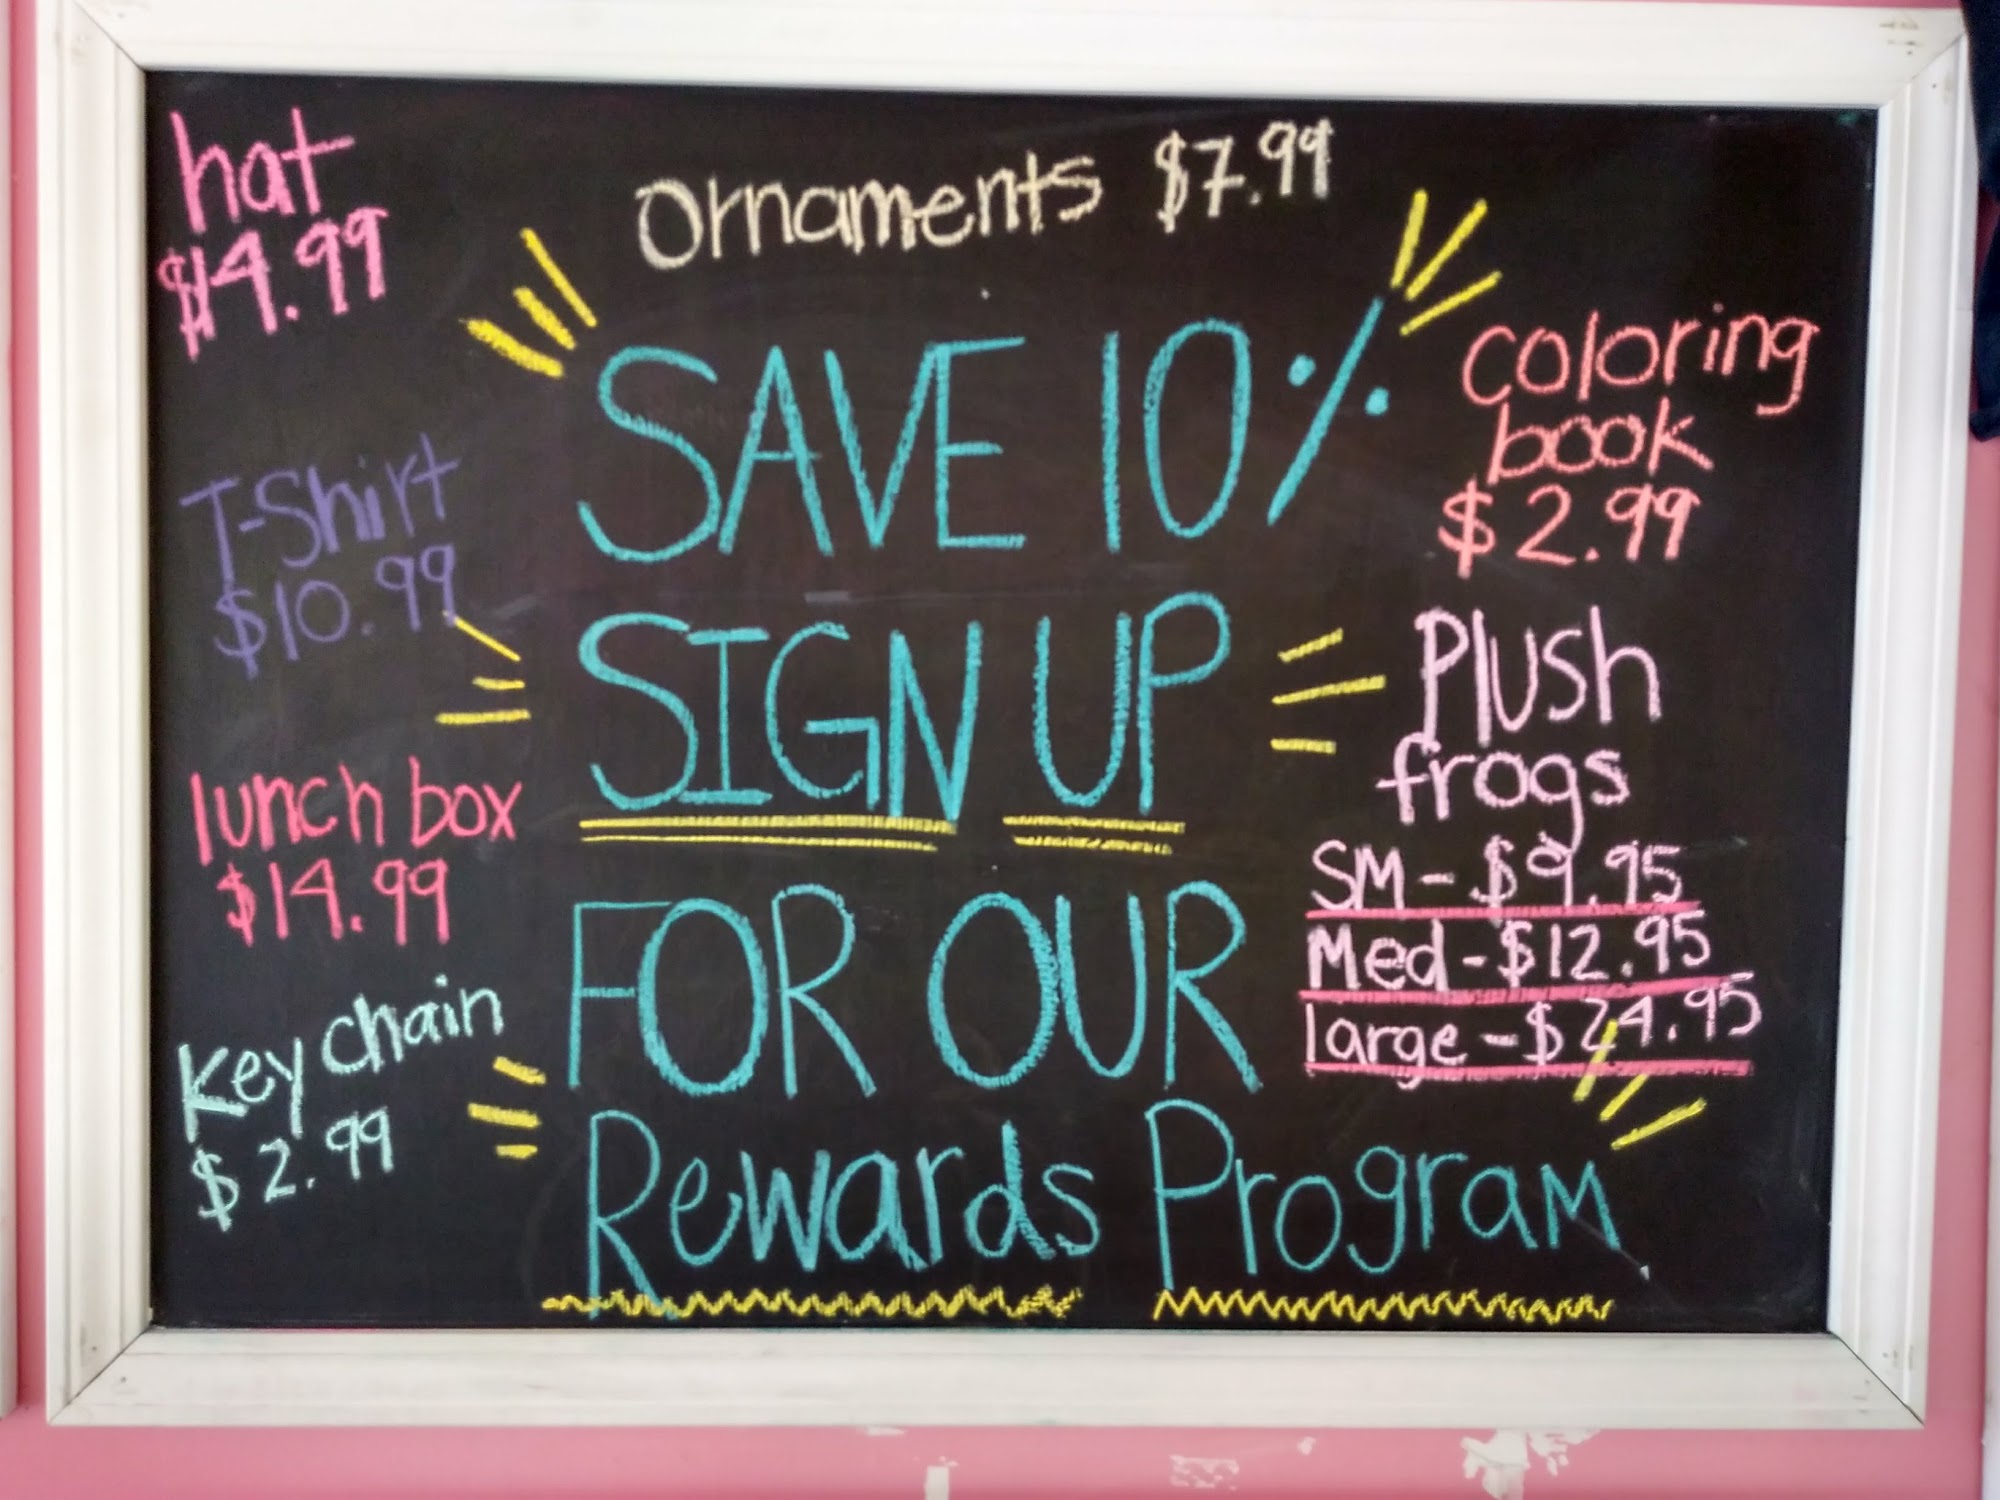 hat
$14.99
Ornaments $7.99
T-Shirt
$10.99
lunch box
$14.99
Key chain
$2.99
SAVE 10%
SIGN UP
FOR OUR
Rewards Program
coloring
book
$2.99
Plush
frogs
SM-$9.95
Med-$12.95
large-$24.95